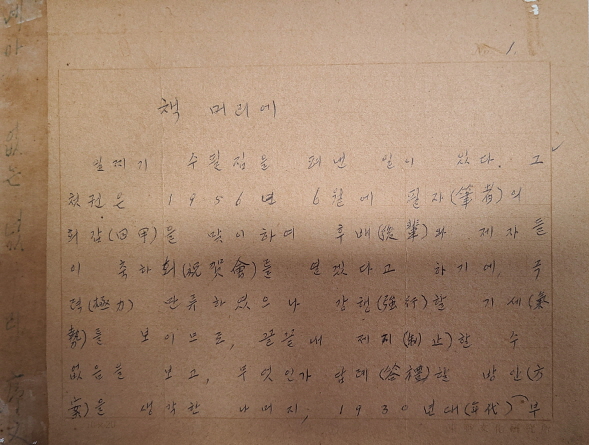 1
책 머리에
일찌기 수필집을 펴낸 일이 있다. 그
첫권은 1956년 6월에 필자(筆者)의
회갑(回甲)를 맞이하여 후배(後輩)와 제자들
이 축하회(祝贺會)를 열겠다고 하기에, 극
력(極力) 만류하였으나 강행(強行)할 기세(氣
勢)를 보이므로, 끝끝내 제지(制止)할 수
없음을 보고, 무엇인가 답례(答禮)할 방안(方
案)을 생각한 나머지, 1930년대(年代) 부